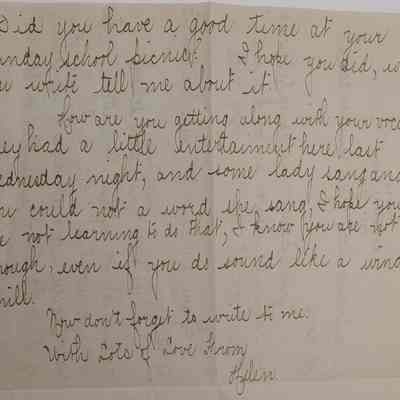 Did you have a good time at your
unday school picnic? I hope you did, w
ou write tell me about it.
How are you getting along with your voca
hey had a little entertainment here last
ednesday night, and some lady sang and
ou could not a word she sang, I hope you
re not learning to do that, I know you are not
nough, even if you do sound like a wind
mill.
Now don't forget to write to me.
With Lots of Love From
Helen